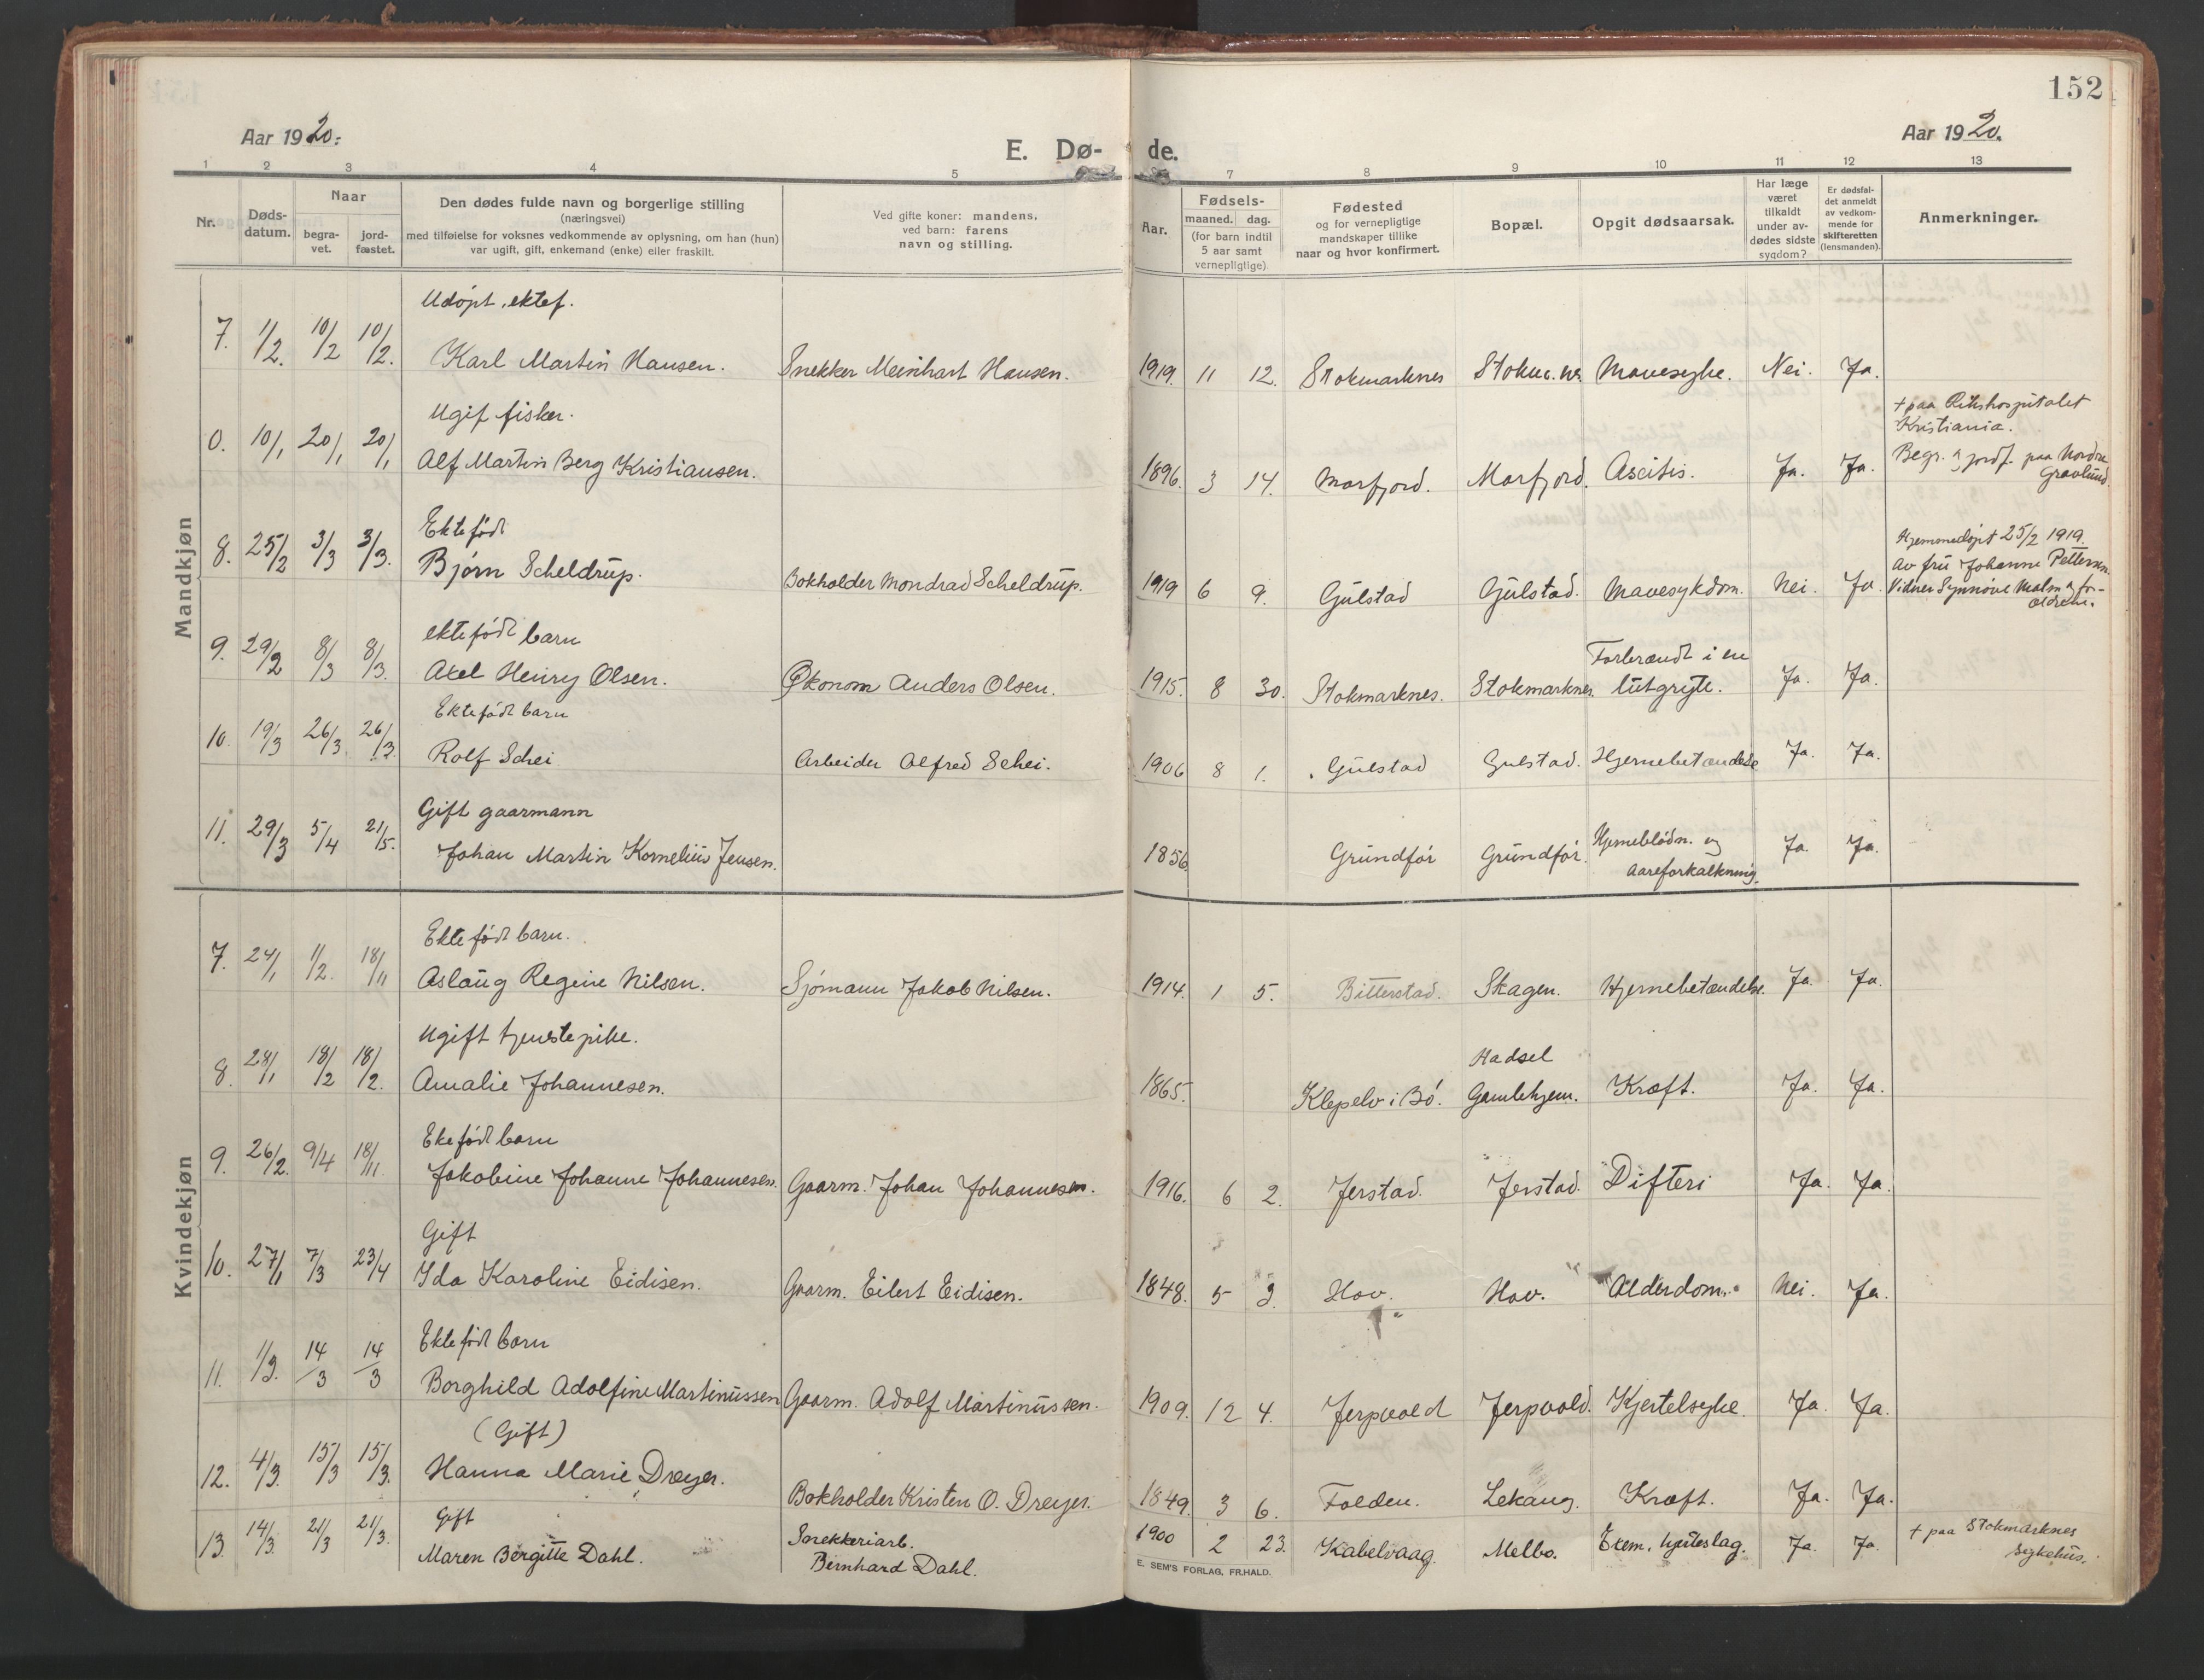 152
Aar 1920.
E. Dø-
de.
Aar 1920.
1 2 3 4 5 7 8 9 10 11 12 13
Nr.
Døds-
datum.
Naar
begra-
vet.
jord-
fæstet.
Den dødes fulde navn og borgerlige stilling
(næringsvei)
med tilføielse for voksnes vedkommende av oplysning, om han (hun)
var ugift, gift, enkemand (enke) eller fraskilt.
Ved gifte koner: mandens,
ved barn: farens
navn og stilling.
Aar.
Fødsels-
maaned. dag.
(for barn indtil
5 aar samt
vernepligtige)
Fødested
og for vernepligtige
mandskaper tillike
naar og hvor konfirmert.
Bopæl.
Opgit dødsaarsak.
Har læge
været
tilkaldt
under av-
dødes sidste
sygdom?
Er dødsfal-
det anmeldt
av vedkom-
mende for
skifteretten
(lensmanden).
Anmerkninger.
Mandkjøn
Udøpt, ektef.
7. 1/2. 10/2 10/2. Karl Martin Hansen. Snekker Meinhart Hansen. 1919. 11 12. Stokmarknes Mavesyke. Nei. Ja.
Ugif fisker.
0. 10/1 20/1 20/1 Alf Martin Berg Kristiansen. 1896. 3 14. Morfjord. Morfjord. Ascitis. Ja. Ja.
+ paa Rikshospitalet
Kristiania.
Begr. og jordf. paa Nordre
Gravlund.
Ektefødt
8. 25/2 3/3 3/3. Bjørn Scheldrup. Bokholder Mondrad Scheldrup. 1919 6 9. Gulstad Gulstad. Mavesykdom. Nei. Ja.
Hjemmedøpt 25/2 1919.
Av fru Johanne Pettersen.
Vidner Synnøve Malm og for-
ældrene.
ektefødt barn
9. 29/2 8/3 8/3. Axel Henry Olsen. Økonom Anders Olsen. 1915. 8 30. Stokmarknes. Stokmarknes. Forbrændt i en
lutgryte. Ja. Ja.
Ektefødt barn
10. 19/3 26/3 26/3. Rolf Schei Arbeider Alfred Schei. 1906 8 1. Gulstad Gulstad. Hjernebetændelse Ja. Ja.
Gift gaarmann
11. 29/3 5/4 21/5. Johan Martin Kornelius Jensen. 1856 Grundfør Grundfør. Hjerneblødn. og
Aareforkalkning. Ja. Ja.
Kvindekjøn
Ektefødt barn.
7. 24/1 1/2. 18/11 Aslaug Regine Nilsen. Sjømann Jakob Nilsen. 1914. 1 5. Bitterstad. Skagen. Hjernebetændelse. Ja. Ja.
Ugift tjenstepike.
8. 28/1 18/2 18/2. Amalie Johannesen. 1865. Klepelv i Bø. Hadsel
Gamlehjem. Kræft. Ja. Ja.
Ekefødt barn
9. 26/2. 9/4 18/11. Jakobine Johanne Johannesen. Gaarm. Johan Johannesen. 1916. 6 2. Jerstad. Jerstad. Difteri Ja. Ja.
Gift
10. 27/1 7/3 23/4 Ida Karoline Eidisen. Gaarm. Eilert Eidisen. 1848. 5 3. Hov. Hov. Alderdom. Nei. Ja.
Ektefødt barn
11. 1/3. 14/3 14/3 Borghild Adolfine Martinussen Gaarm. Adolf Martinussen. 1909. 12 4. Jerpvold Jerpvold. Kjertelsyke. Ja. Ja.
(Gift)
12. 4/3. 15/3 15/3. Hanna Marie Dreyer. Bokholder Kristen O. Dreyer. 1849. 3 6. Folden. Lekang. Kræft. Ja. Ja.
Gift
13. 14/3. 21/3 21/3. Maren Bergitte Dahl. Snekkeriarb.
Bernhard Dahl. 1900 2 23. Kabelvaag. Melbo. Exem, hjerteslag. Ja. Ja.
+ paa Stokmarknes
sykehus.
E. SEM'S FORLAG, FR.HALD.